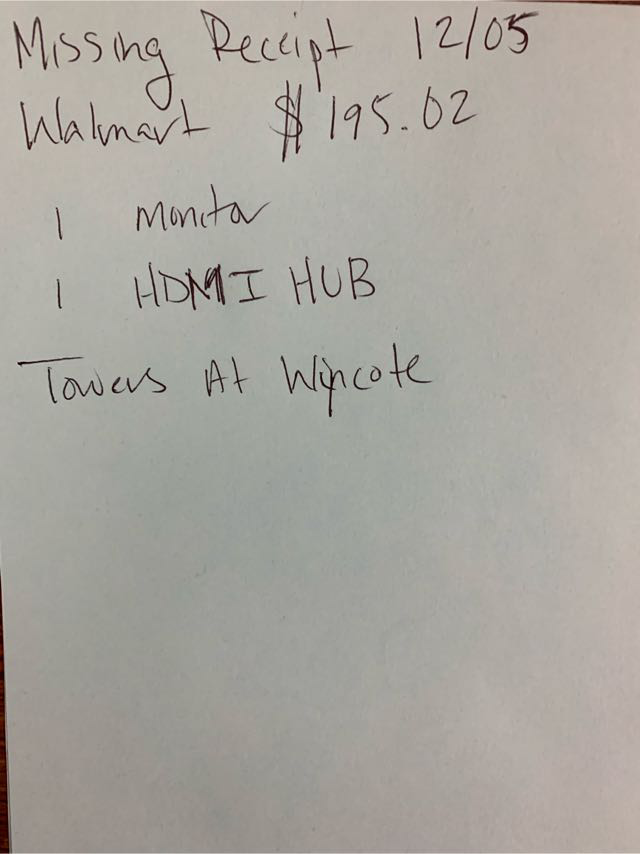 Missing Receipt 12/05
Walmart $195.02
1 Monitor
1 HDMI HUB
Towers At Wyncote